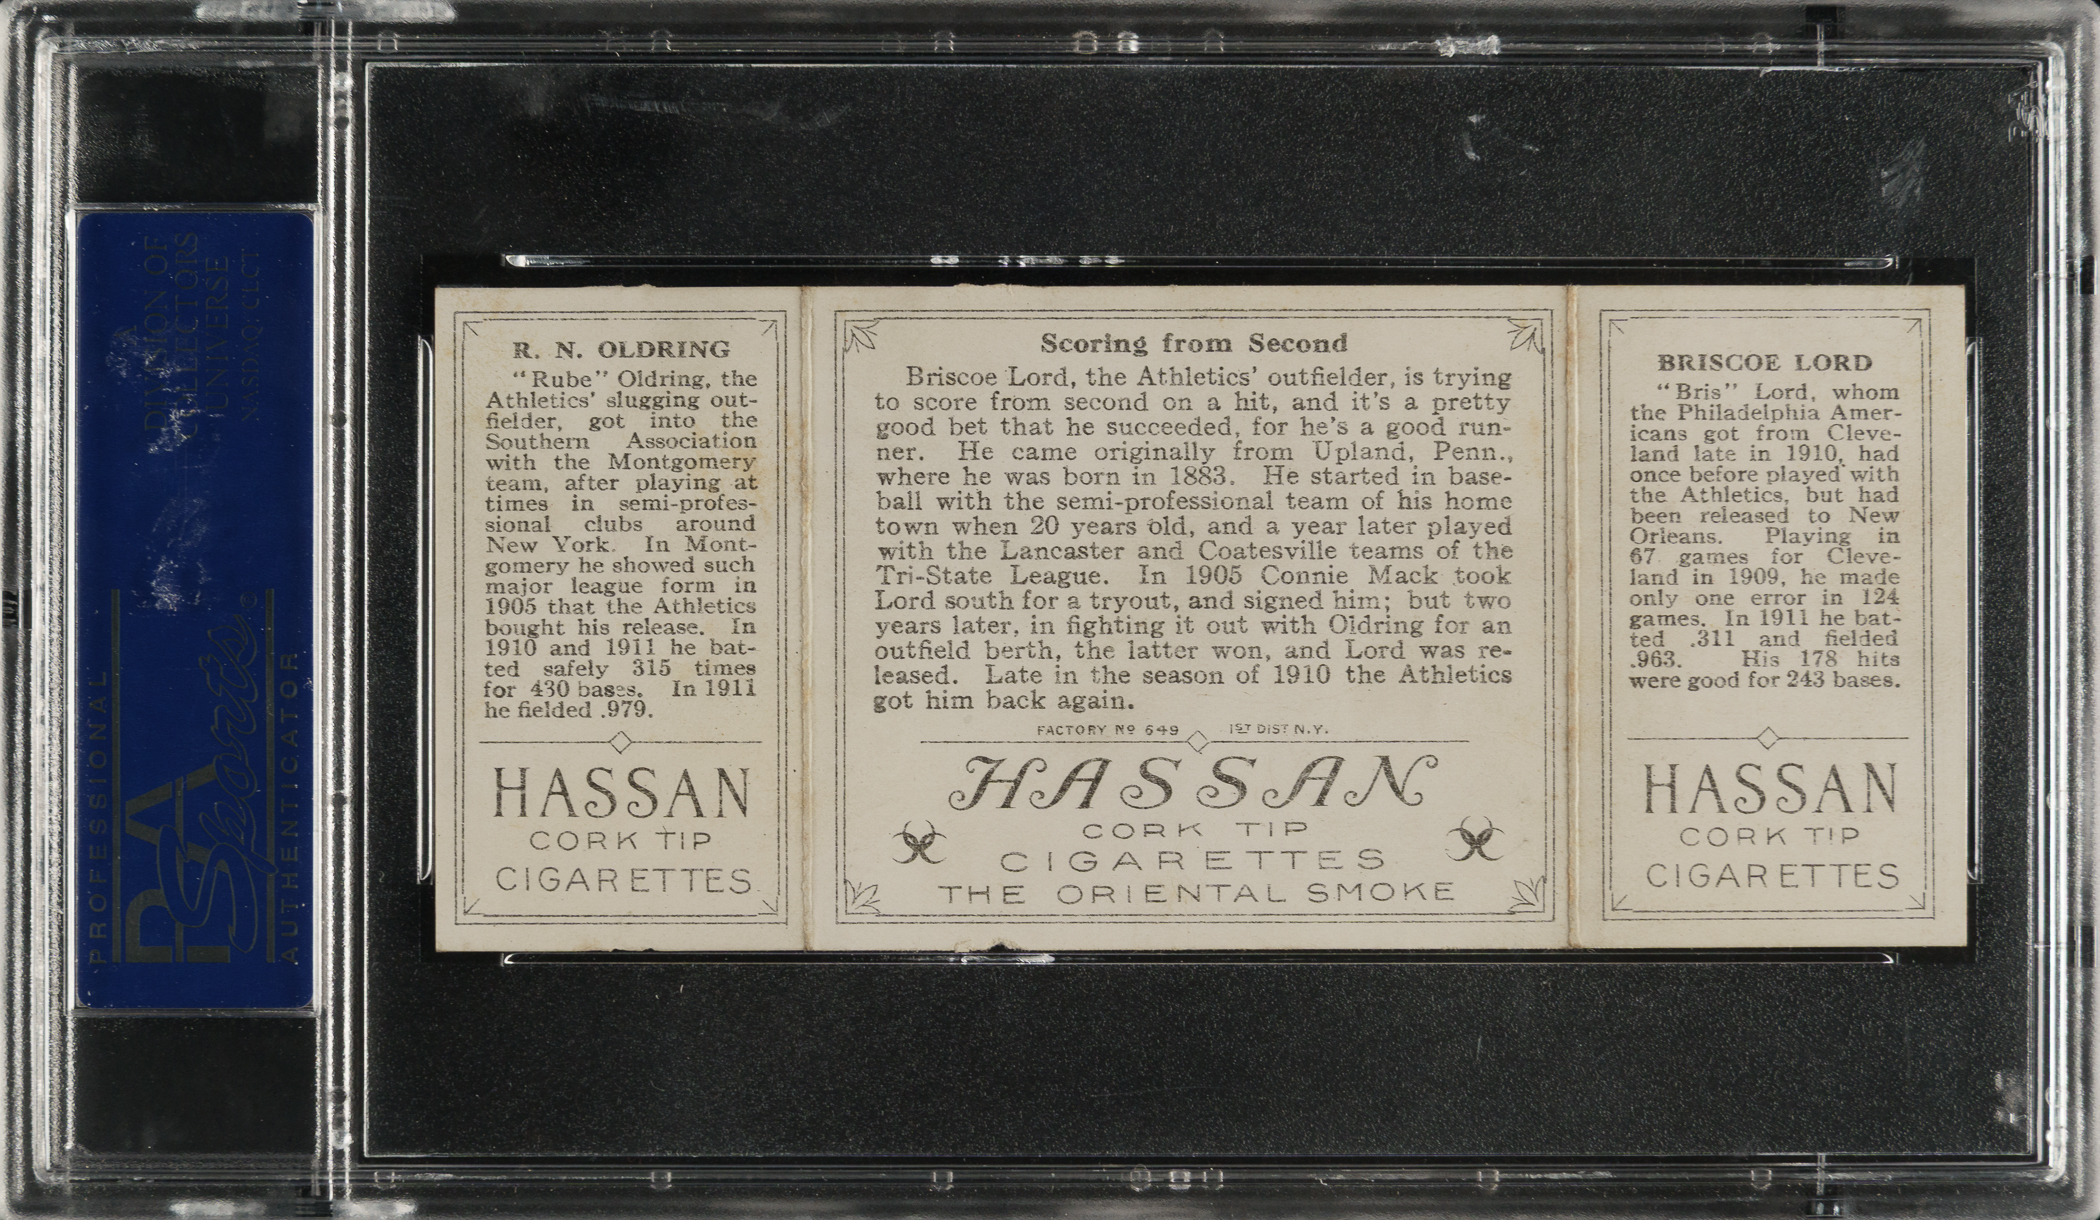 DIVISION OF
COLLECTORS
UNIVERSE
NASDAQ: CLCT
PROFESSIONAL
PSA
Sports
AUTHENTICATOR
R. N. OLDRING
"Rube" Oldring, the
Athletics' slugging out-
fielder, got into the
Southern Association
with the Montgomery
team, after playing at
times in semi-profes-
sional clubs around
New York. In Mont-
gomery he showed such
major league form in
1905 that the Athletics
bought his release. In
1910 and 1911 he bat-
ted safely 315 times
for 430 bases. In 1911
he fielded .979.
HASSAN
CORK TIP
CIGARETTES
Scoring from Second
Briscoe Lord, the Athletics' outfielder, is trying
to score from second on a hit, and it's a pretty
good bet that he succeeded, for he's a good run-
ner. He came originally from Upland, Penn.,
where he was born in 1883. He started in base-
ball with the semi-professional team of his home
town when 20 years old, and a year later played
with the Lancaster and Coatesville teams of the
Tri-State League. In 1905 Connie Mack took
Lord south for a tryout, and signed him; but two
years later, in fighting it out with Oldring for an
outfield berth, the latter won, and Lord was re-
leased. Late in the season of 1910 the Athletics
got him back again.
FACTORY No 649 1ST DIST N.Y.
HASSAN
CORK TIP
CIGARETTES
THE ORIENTAL SMOKE
BRISCOE LORD
"Bris" Lord, whom
the Philadelphia Amer-
icans got from Cleve-
land late in 1910, had
once before played with
the Athletics, but had
been released to New
Orleans. Playing in
67 games for Cleve-
land in 1909, he made
only one error in 124
games. In 1911 he bat-
ted .311 and fielded
.963. His 178 hits
were good for 243 bases.
HASSAN
CORK TIP
CIGARETTES